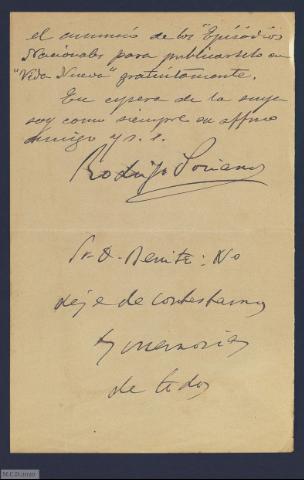 el anuncio de los "Episodios
Nacionales para publicárselo en
"Vida Nueva" gratuitamente.
En espera de la suya
soy como siempre su affmo
amigo y s. s.
Rodrigo Soriano
Sr. D. Benito: No
deje de contestarnos
y memorias
de todos
M.C.D. 2020